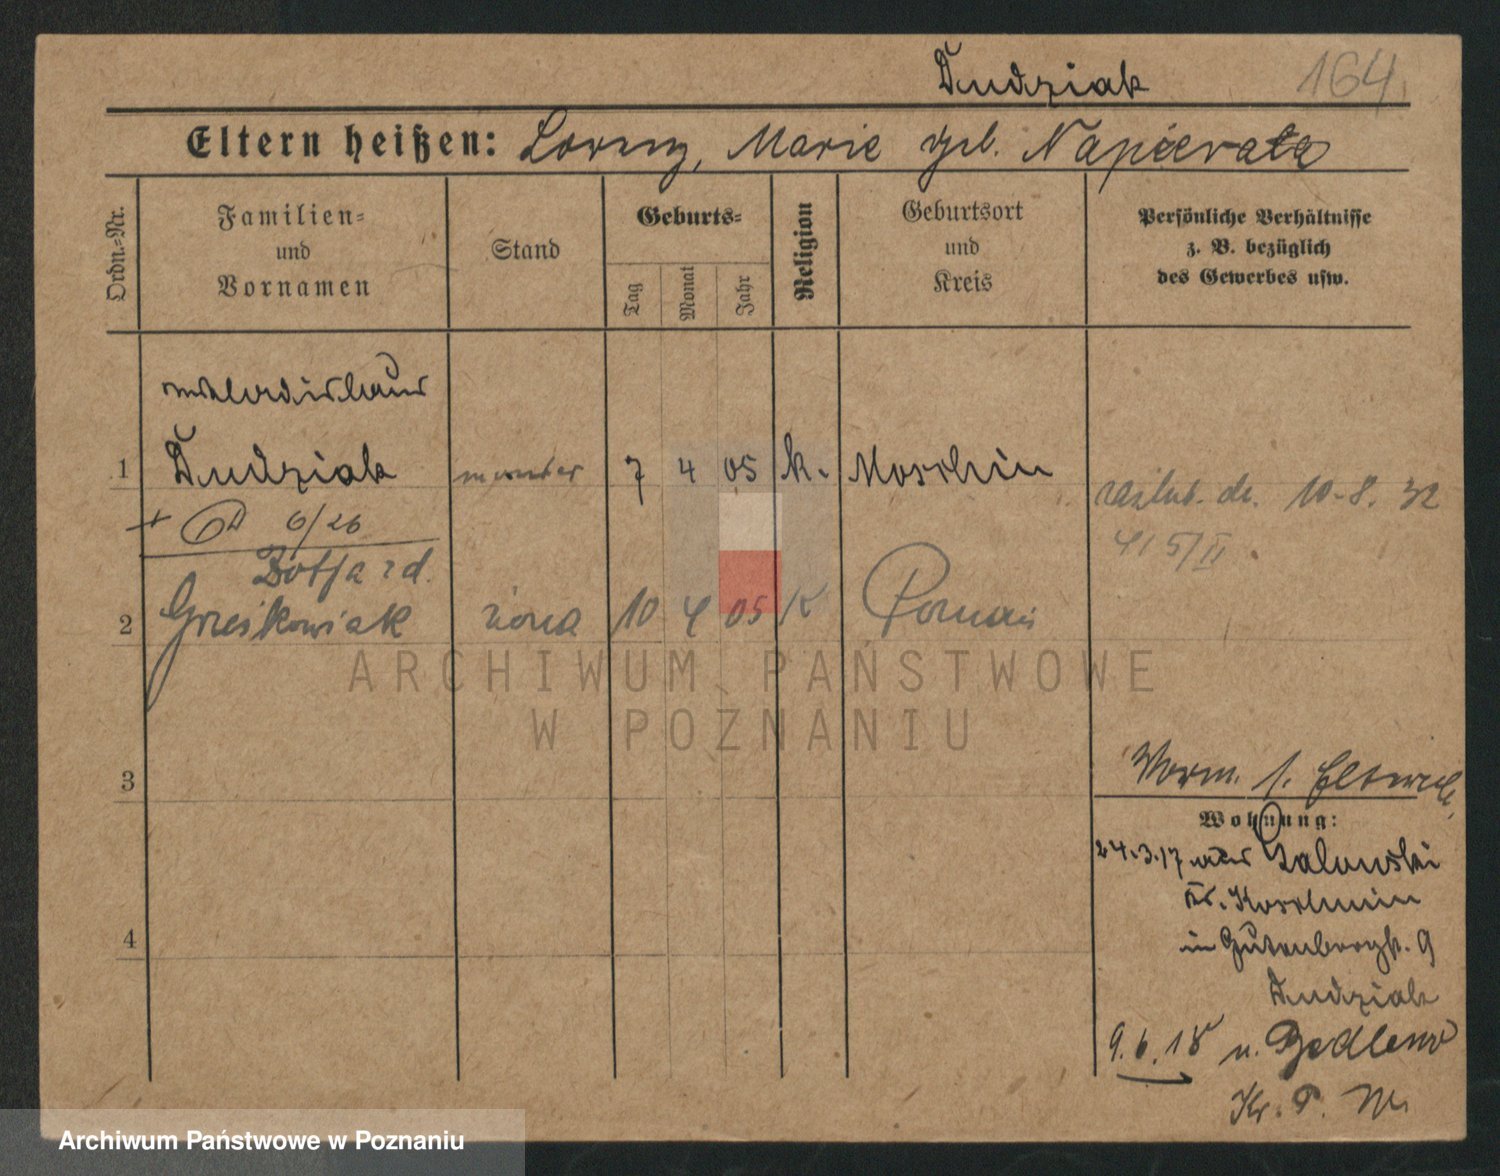 Dudziak 164
Eltern heißen: Lorenz, Marie geb. Napierala
Ordn.-Nr.
Familien-
und
Vornamen
Stand
Geburts-
Tag
Monat
Jahr
Religion
Geburtsort
und
Kreis
Persönliche Verhältnisse
z. B. bezüglich
des Gewerbes usw.
1 Dudziak 7 4 05 k. Moschin
10.8.32
6/26
415/II
2 Grześkowiak żona 10 4 05 K Poznań
3
Vorm.
Wohnung:
24.3.17
in Gutenbergstr. 9
4
Dudziak
9.6.18 n.
Kr. P. W.
ARCHIWUM PAŃSTWOWE
W POZNANIU
Archiwum Państwowe w Poznaniu